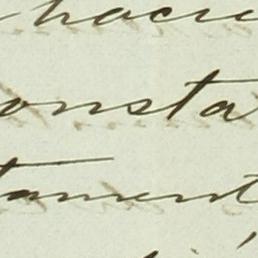 hacie
onsta
tament